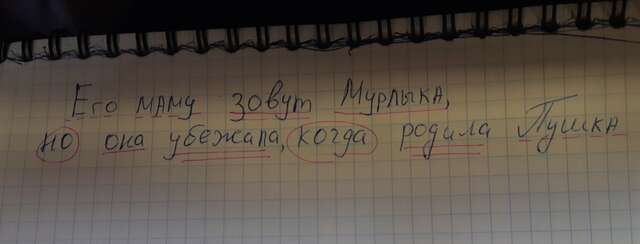 Его маму зовут Мурлыка,
но она убежала, когда родила Пушка